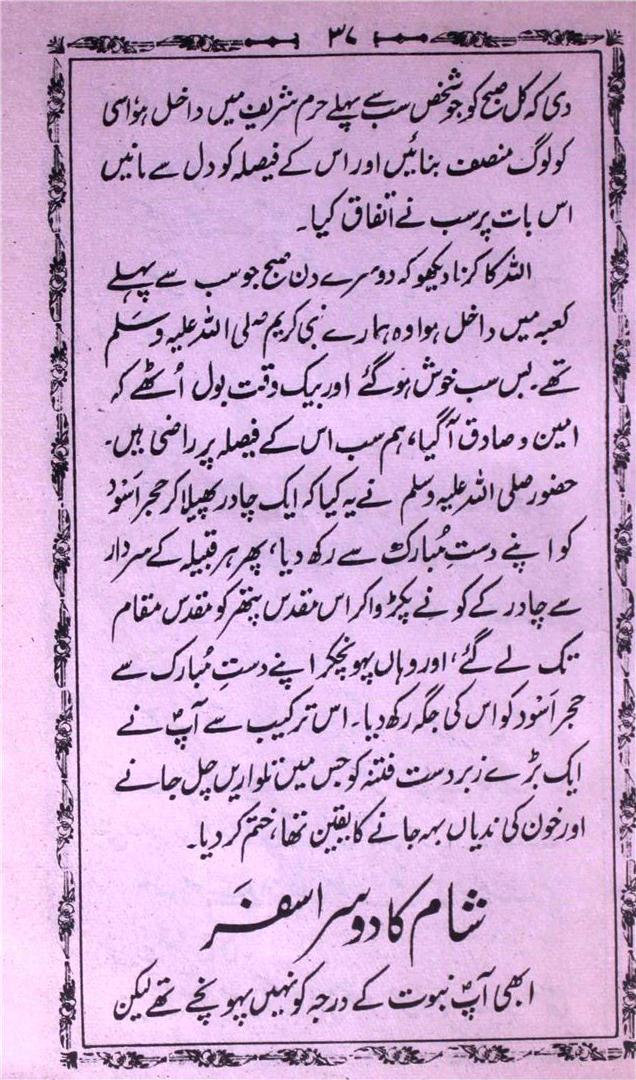 ۳۷
دی کہ کل صبح کو جو شخص سب سے پہلے حرم شریف میں داخل ہو اسی
کو لوگ منصف بنائیں اور اس کے فیصلہ کو دل سے مانیں
اس بات پر سب نے اتفاق کیا۔
اللہ کا کرنا دیکھو کہ دوسرے دن صبح جو سب سے پہلے
کعبہ میں داخل ہوا وہ ہمارے نبی کریم صلی اللہ علیہ وسلم
تھے۔ بس سب خوش ہو گئے اور بیک وقت بول اُٹھے کہ
امین و صادق آ گیا، ہم سب اس کے فیصلہ پر راضی ہیں۔
حضور صلی اللہ علیہ وسلم نے یہ کیا کہ ایک چادر پھیلا کر حجر اَسْود
کو اپنے دستِ مُبارک سے رکھ دیا، پھر ہر قبیلہ کے سردار
سے چادر کے کونے پکڑوا کر اس مقدس پتھر کو مقدس مقام
تک لے گئے، اور وہاں پہونچکر اپنے دستِ مُبارک سے
حجر اَسْود کو اس کی جگہ رکھ دیا۔ اس ترکیب سے آپؐ نے
ایک بڑے زبردست فتنہ کو جس میں تلواریں چل جانے
اور خون کی ندیاں بہہ جانے کا یقین تھا، ختم کر دیا۔
شام کا دوسرا سفر
ابھی آپؐ نبوت کے درجہ کو نہیں پہونچے تھے لیکن